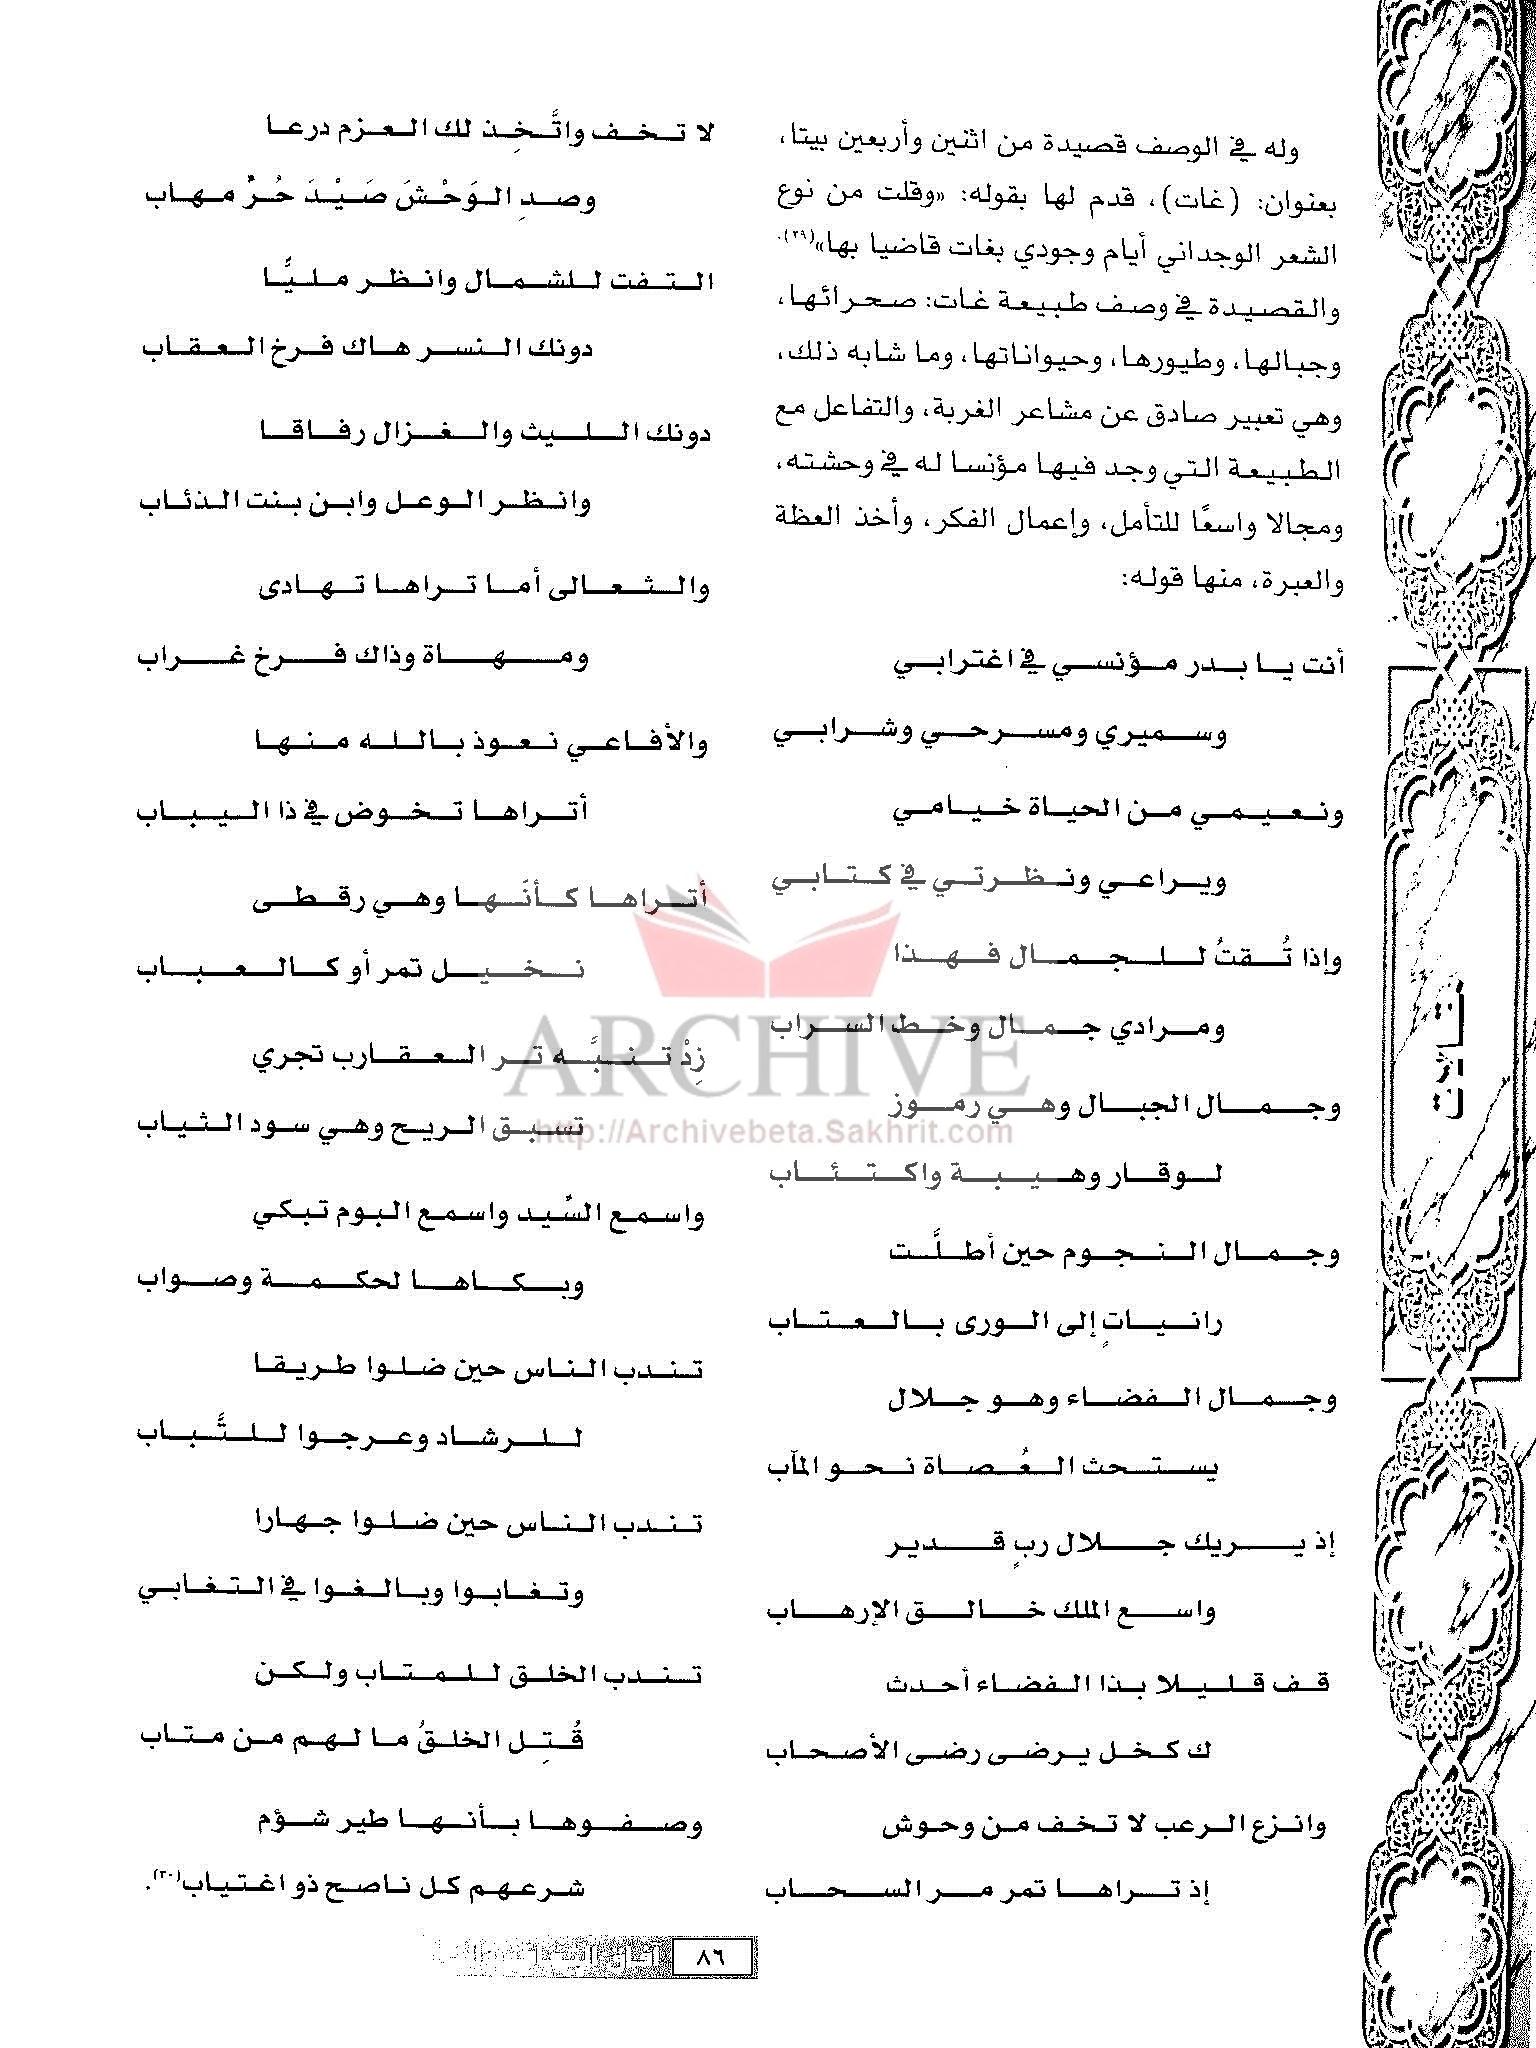 وله في الوصف قصيدة من اثنتين وأربعين بيتا،
بعنوان: (غات)، قدم لها بقوله: «وقلت من نوع
الشعر الوجداني أيام وجودي بغات قاضيا بها»(٢٩).
والقصيدة في وصف طبيعة غات: صحرائها،
وجبالها، وطيورها، وحيواناتها، وما شابه ذلك،
وهي تعبير صادق عن مشاعر الغربة، والتفاعل مع
الطبيعة التي وجد فيها مؤنسا له في وحشته،
ومجالا واسعًا للتأمل، وإعمال الفكر، وأخذ العظة
والعبرة، منها قوله:
أنت يا بدر مؤنسي في اغترابي
وسميري ومسرحي وشرابي
ونعيمي من الحياة خيامي
ويراعي ونظرتي في كتابي
وإذا تُقتُ للجمال فهذا
ومرادي جمال وخط السراب
وجمال الجبال وهي رموز
لوقار وهيبة واكتئاب
وجمال النجوم حين أطلَّت
رانياتٍ إلى الورى بالعتاب
وجمال الفضاء وهو جلال
يستحث العُصاة نحو المآب
إذ يريك جلال ربٍ قدير
واسع الملك خالق الإرهاب
قف قليلا بذا الفضاء أحدث
ك كخل يرضى رضى الأصحاب
وانزع الرعب لا تخف من وحوش
إذ تراها تمر مر السحاب
لا تخف واتَّخِذ لك العزم درعا
وصدِ الوَحْشَ صَيْدَ حُرٍّ مهاب
التفت للشمال وانظر مليًّا
دونك النسر هاك فرخ العقاب
دونك الليث والغزال رفاقا
وانظر الوعل وابن بنت الذئاب
والثعالى أما تراها تهادى
ومهاة وذاك فرخ غراب
والأفاعي نعوذ بالله منها
أتراها تخوض في ذا اليباب
أتراها كأنَها وهي رقطى
نخيل تمر أو كالعباب
زِدْ تنبُّه تر العقارب تجري
تسبق الريح وهي سود الثياب
واسمع السِّيد واسمع البوم تبكي
وبكاها لحكمة وصواب
تندب الناس حين ضلوا طريقا
للرشاد وعرجوا للتَّباب
تندب الناس حين ضلوا جهارا
وتغابوا وبالغوا في التغابي
تندب الخلق للمتاب ولكن
قُتِل الخلقُ ما لهم من متاب
وصفوها بأنها طير شؤم
شرعهم كل ناصح ذو اغتياب(٣٠).
مقالات
ARCHIVE
http://Archivebeta.Sakhrit.com
٨٦